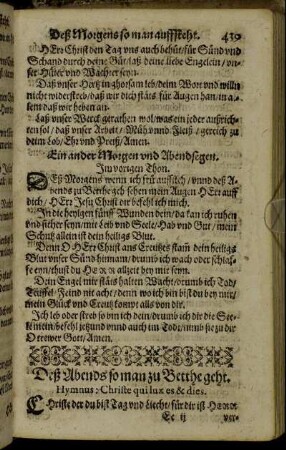 Deß Morgens so man auffsteht. 439
HErr Christ den Tag vns auch behüt/ für Sünd vnd
Schand durch deine Güt/ laß deine liebe Engelein/ vn-
ser Hüter vnd Wächter seyn.
Daß vnser Hertz in ghorsam leb/ deim Wort vnd willn
nicht widerstreb/ daß wir dich stäts für Augen han/ in al-
lem daß wir heben an.
Laß vnser Werck gerathen wol/ was ein jeder außrich-
ten sol/ daß vnser Arbeit/ Müh vnnd Fleiß/ gereich zu
deim Lob/ Ehr vnd Preiß/ Amen.
Ein ander Morgen vnd Abendsegen.
Im vorigen Thon.
DEß Morgens wenn ich früh auffsteh/ vnnd deß A-
bends zu Bethe geh sehen mein Augen HErr auff
dich/ Herr Jesu Christ dir befehl ich mich.
In die heylgen fünff Wunden dein/ da kan ich ruhen
vnd sicher seyn/ mit Leib vnd Seel/ Hab vnd Gut/ mein
Schutz allein ist dein heiligs Blut.
Denn O HErr Christ ans Creutzes stam dein heiligs
Blut vnser Sünd hinnam/ drumb ich wach oder schlaf-
fe eyn/ thust du HERR allzeit bey mir seyn.
Dein Engel mir stäts halten Wacht/ drumb ich Tod/
Teuffel/ Feind nit acht/ denn wo ich bin bist du bey mir/
mein Glück vnd Creutz kompt alls von dir.
Ich leb oder streb so bin ich dein/ drumb ich dir die See-
le mein/ befehl jetzund vnnd auch im Todt/ nimb sie zu dir
O trewer Gott/ Amen.
Deß Abends so man zu Bethe geht.
Hymnus: Christe qui lux es & dies.
CHriste der du bist Tag vnd Liecht/ für dir ist HERR
Ee ij ver-